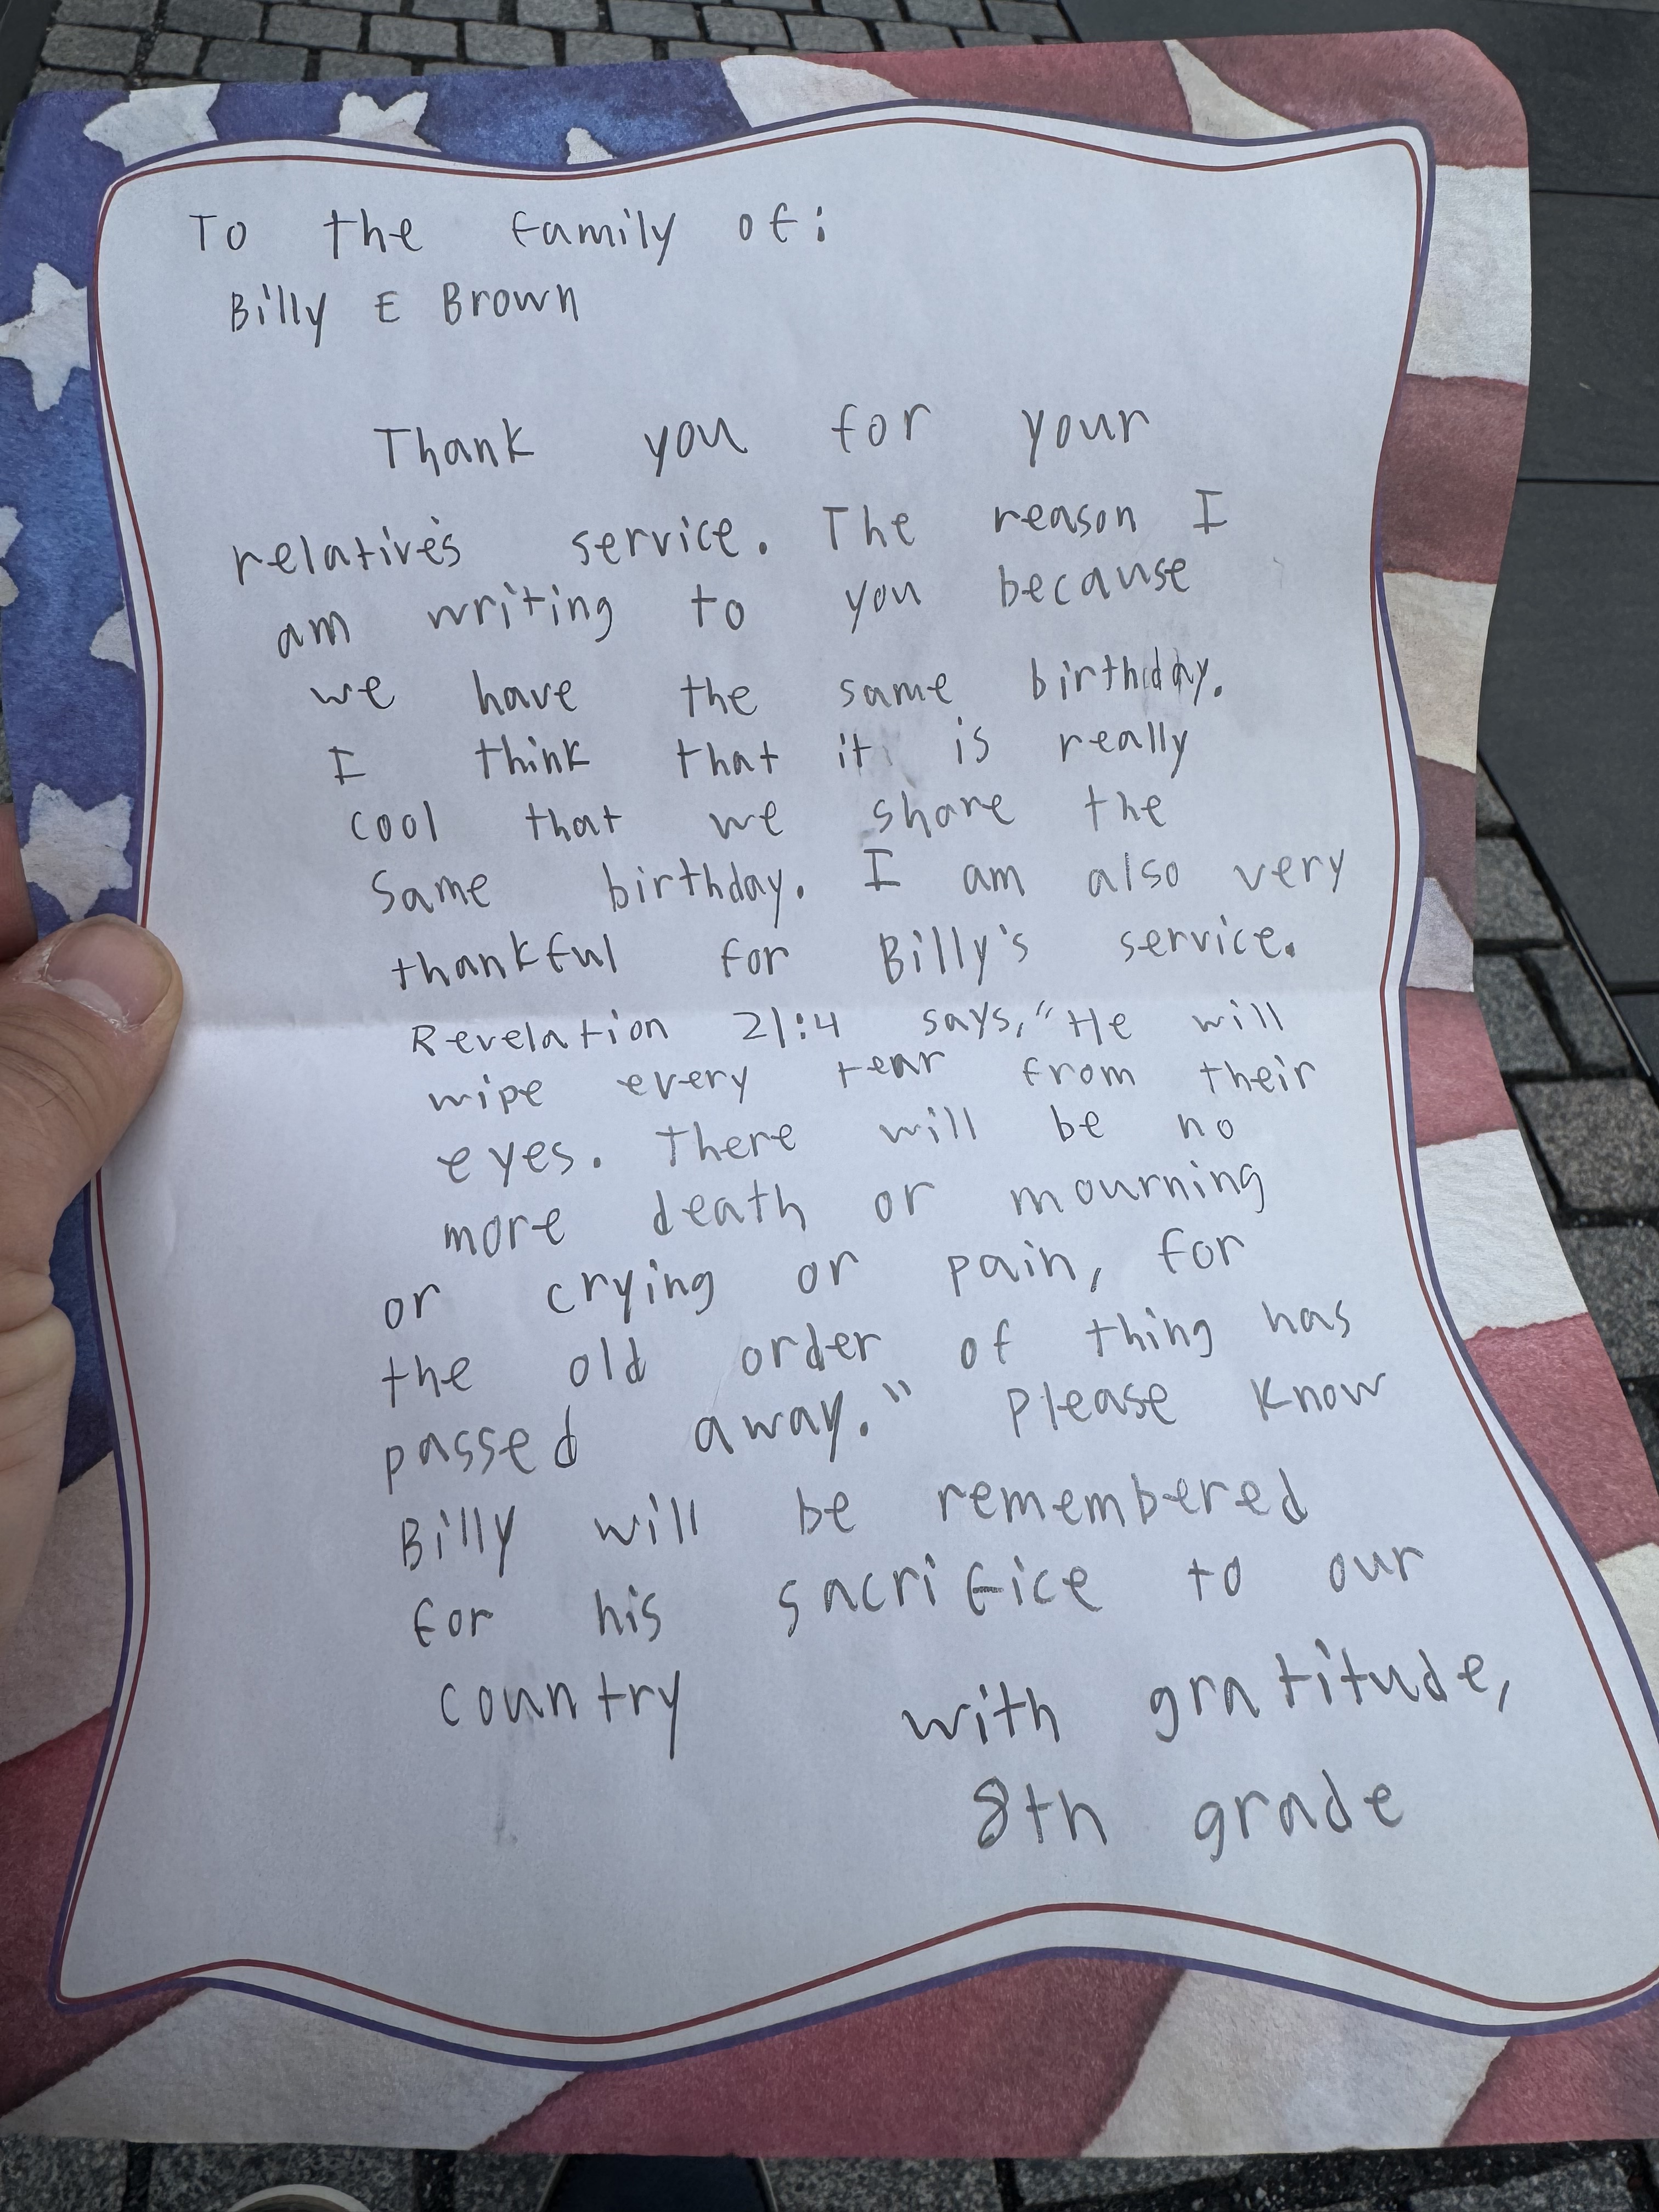 To the family of:
Billy E Brown
Thank you for your
relative's service. The reason I
am writing to you because
we have the same birthday.
I think that it is really
cool that we share the
same birthday. I am also very
thankful for Billy's service.
Revelation 21:4 says, "He will
wipe every tear from their
eyes. There will be no
more death or mourning
or crying or pain, for
the old order of thing has
passed away." Please know
Billy will be remembered
for his sacrifice to our
country
with gratitude,
8th grade